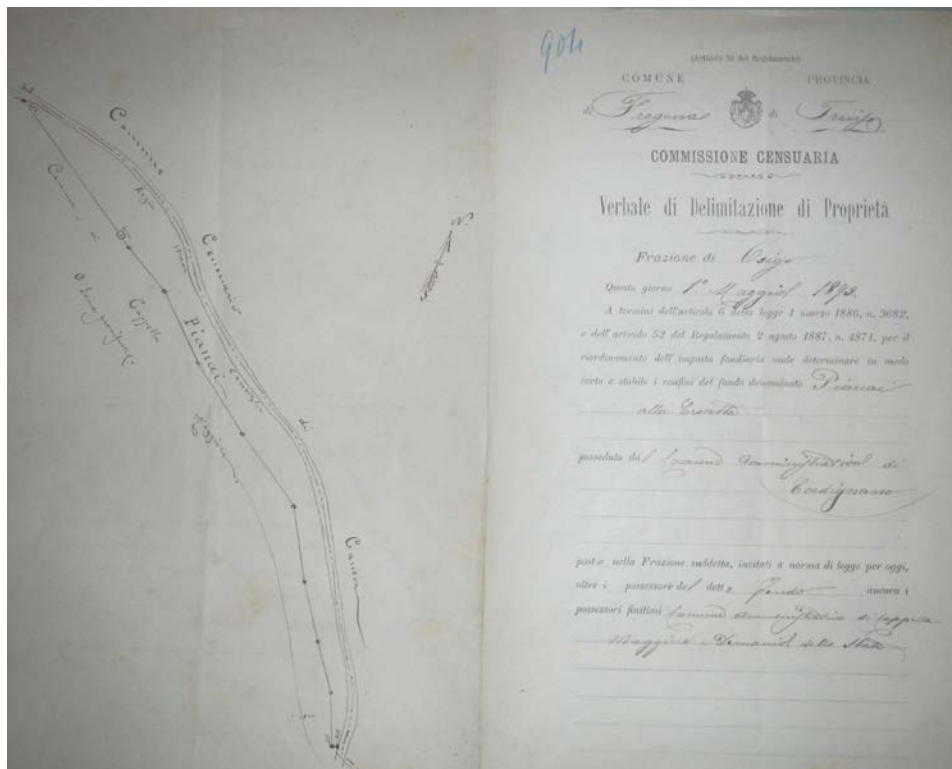 904
(Articolo 52 del Regolamento)
COMUNE PROVINCIA
di Fregona di Treviso
COMMISSIONE CENSUARIA
Verbale di Delimitazione di Proprietà
Frazione di Osigo
Questo giorno 1° Maggio 1893.
A termini dell'articolo 6 della legge 1 marzo 1886, n. 3682,
e dell'articolo 52 del Regolamento 2 agosto 1887, n. 4871, per il
riordinamento dell'imposta fondiaria onde determinare in modo
certo e stabile i confini del fondo denominato Pianai
alla Crosetta
posseduto dal Comune Amministrativo di
Cordignano
posto nella Frazione suddetta, invitati a norma di legge per oggi,
oltre i possessore del detto fondo ancora i
possessori finitimi Comune Amministrativo di Cappella
Maggiore e Demanio dello Stato
Comune Censuario di Caneva
Regio
Comune di
Cappella
Maggiore
Pianai
N.